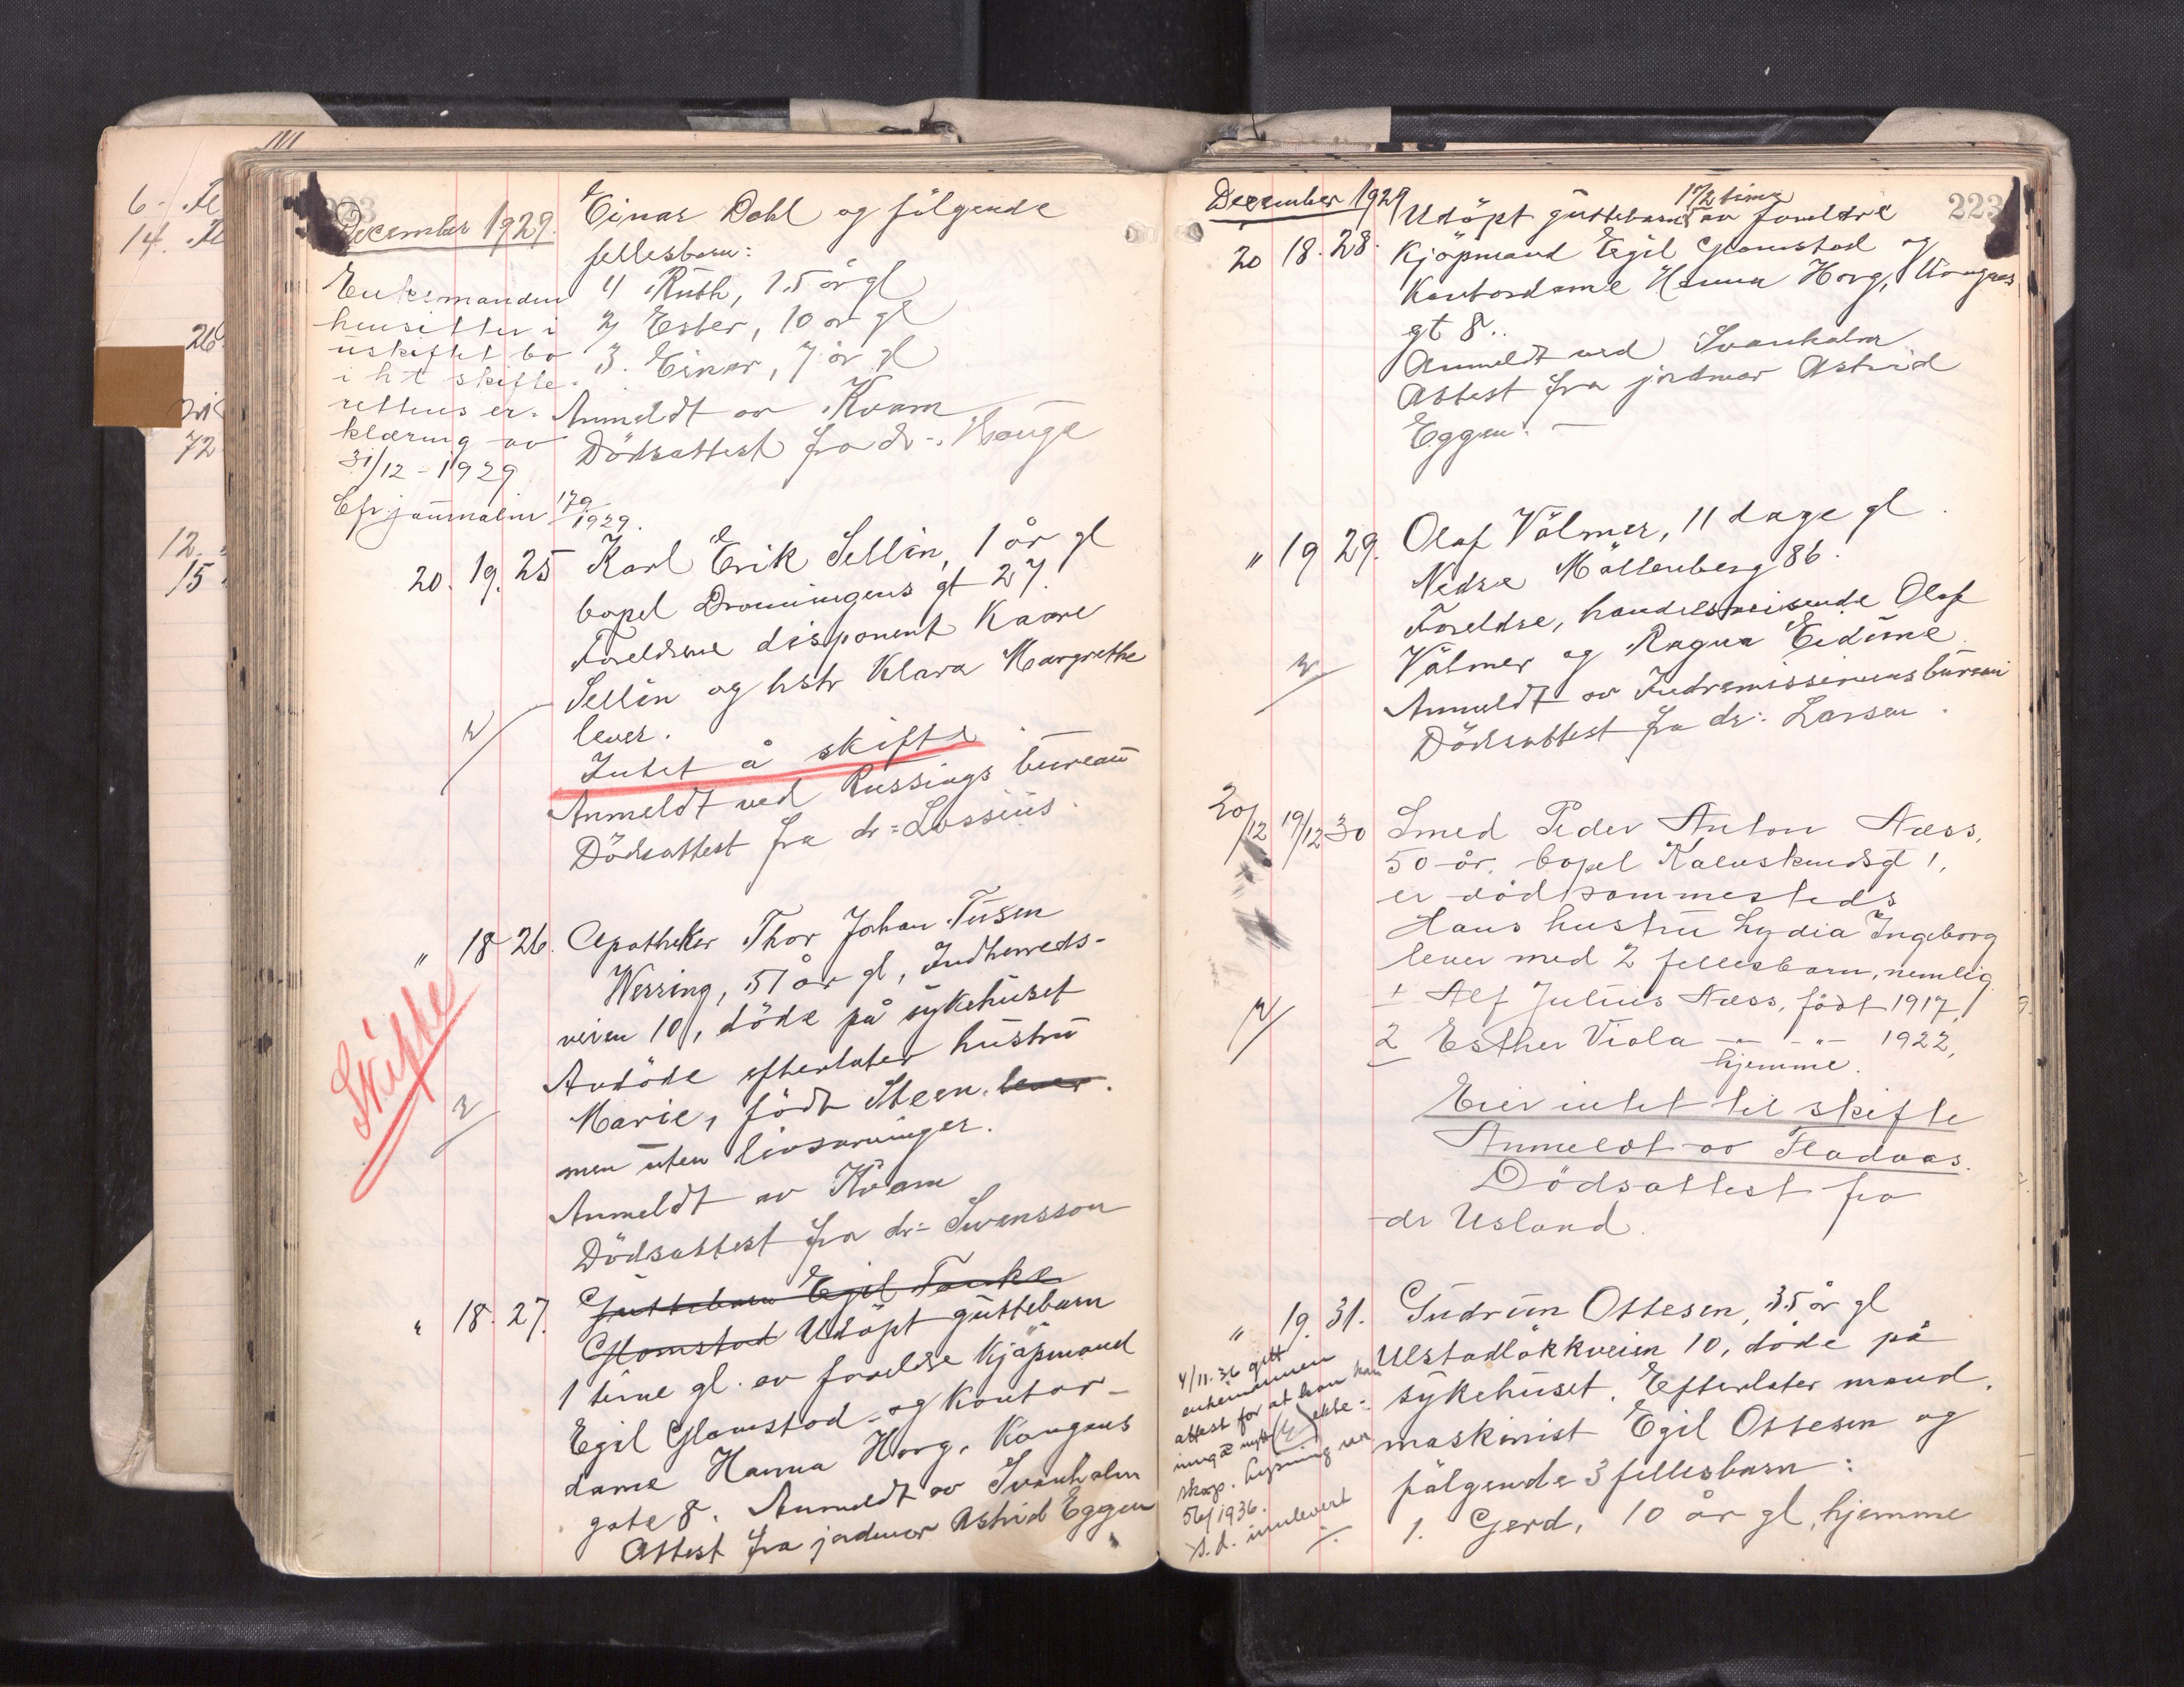 6
14.
26
72
12.
15
December 1929.
Enkemanden
hensitter i
uskiftet bo
i h t skifte-
rettens er-
klæring av
31/12 - 1929
Efr. journalnr 179/1929.
Einar Dahl og følgende
fellesbarn:
1) Ruth, 15 år gl
2) Ester, 10 år gl
3. Einar, 7 år gl
Anmeldt av Kvam
Dödsattest fra dr.
20. 19. 25 Karl Erik Sellin, 1 år gl
bopel Dronningens gt 27.
Foreldrene disponent Kaare
Sellin og hstr Klara Margrethe
lever.
Intet å skifte
Anmeldt ved Russings bureau
Dödsattest fra dr: Lossius.
Skifte
" 18 26. Apotheker Thor Johan Tusen
Wessing, 51 år gl, Indherreds-
veien 10, döde på sykehuset
Avdöde efterlater hustru
Marie, födt Steen. lever.
men uten livsarvinger.
Anmeldt av Kvam
Dödsattest fra dr: Svensson
" 18. 27. Guttebarn Egil Tanke
Glomstad Udöpt guttebarn
1 time gl. av foreldre Kjöpmand
Egil Glomstad og Kontor-
dame Hanna Horg, Kongens
gate 8. Anmeldt av Svanholm
Attest fra jordmor Astrid Eggen
December 1929
223
20 18. 28. Udöpt guttebarn 1 1/2 time av foreldre
Kjöpmand Egil Glomstad og
Kontordame Hanna Horg, Kongens
gt 8..
Anmeldt ved Svanholm
Attest fra jordmor Astrid
Eggen. —
" 19 29. Olaf Völmer, 11 dage gl.
Nedre Möllenberg 86.
Foreldre, handelsreisende Olaf
Völmer og Ragna Eidime.
Anmeldt av Indremissionens bureau
Dödsattest fra dr: Larsen.
20/12 19/12 30 Smed Peder Anton Næss,
50 år, bopel Kalvskindsgt 1,
er död sammesteds
Hans hustru Lydia Ingeborg
lever med 2 fellesbarn, nemlig
1 Alf Julius Næss, födt 1917,
2 Esther Viola - " - - " - 1922,
hjemme.
Eier intet til skifte
Anmeldt av Fladaas.
Dödsattest fra
dr Usland.
" 19. 31. Gudrun Ottesen, 35 år gl
Ulstadlökkveien 10, döde på
sykehuset. Efterlater mand,
maskinist Egil Ottesen og
følgende 3 fellesbarn:
1. Gerd, 10 år gl, hjemme
4/11-36 gitt
enkemannen
attest for at han kan
inngå nytt ekte-
skap. Lysning var
5/6 1936.
s.d. innlevert